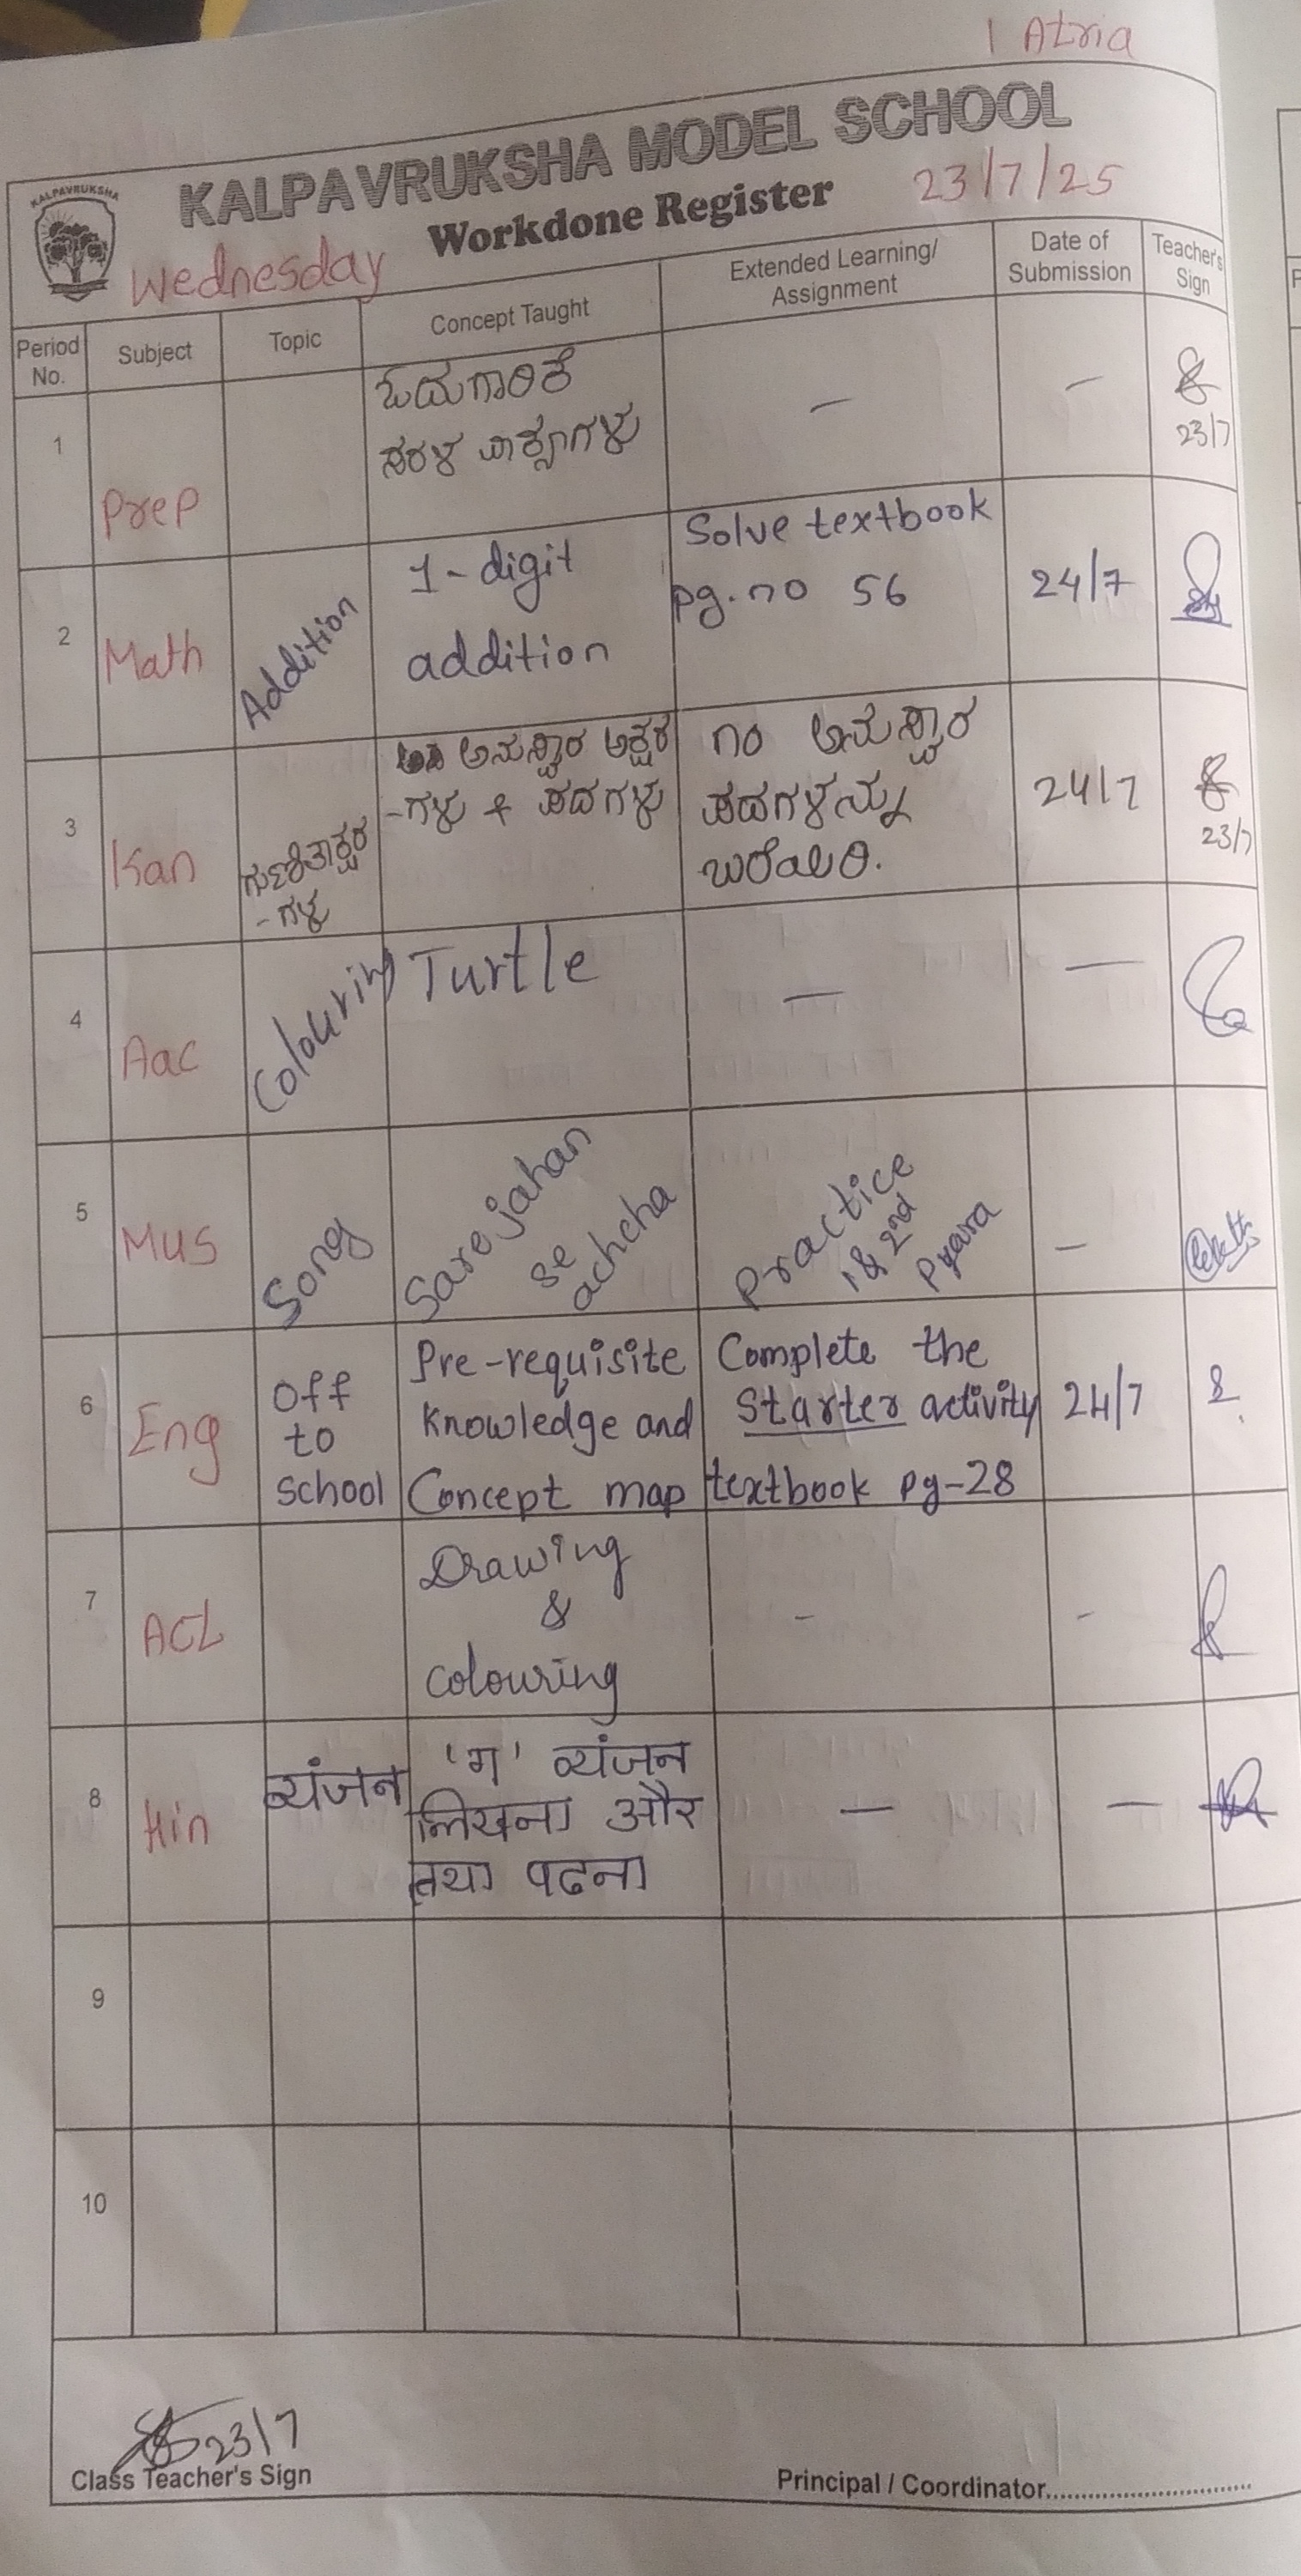 1 Atria
KALPAVRUKSHA
KALPAVRUKSHA MODEL SCHOOL
Workdone Register
23/7/25
Wednesday
Period No.
Subject
Topic
Concept Taught
Extended Learning/
Assignment
Date of
Submission
Teacher's
Sign
1
Prep
ಓದುಗಾರಿಕೆ
ಸರಳ ವಾಕ್ಯಗಳು
—
—
23/7
2
Math
Addition
1-digit
addition
Solve textbook
pg.no 56
24/7
3
Kan
ಗುಣಿತಾಕ್ಷರ
-ಗಳು
ಅನುಸ್ವಾರ ಅಕ್ಷರ
-ಗಳು + ಪದಗಳು
ಅನುಸ್ವಾರ
ಪದಗಳನ್ನು
ಬರೆಯಿರಿ.
24/7
23/7
4
Aac
Colouring
Turtle
—
—
5
Mus
Song
Sare jahan
se
achcha
Practice
1 & 2nd
Pyara
—
6
Eng
Off
to
school
Pre-requisite
Knowledge and
Concept map
Complete the
Starter activity
textbook pg-28
24/7
7
ACL
Drawing
&
Colouring
-
-
8
Hin
व्यंजन
'ग' व्यंजन
लिखना और
तथा पढना
—
—
9
10
23/7
Class Teacher's Sign
Principal / Coordinator..............................